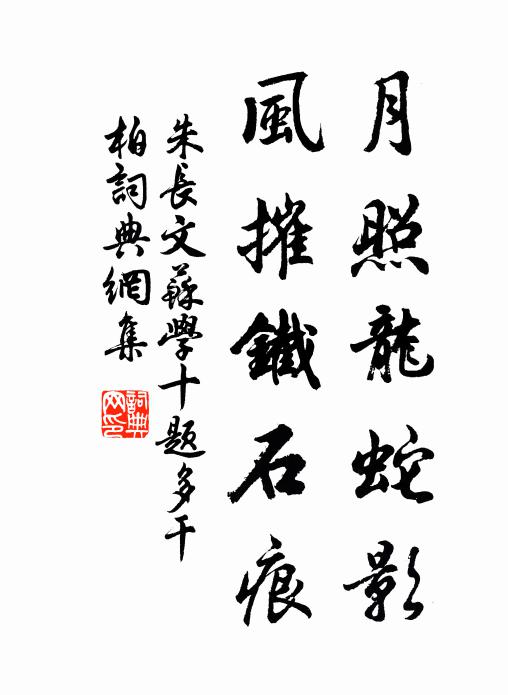 月照龍蛇影
風摧鐵石痕
朱長文蘇學十題多干
柏詞典網集
詞典
网印